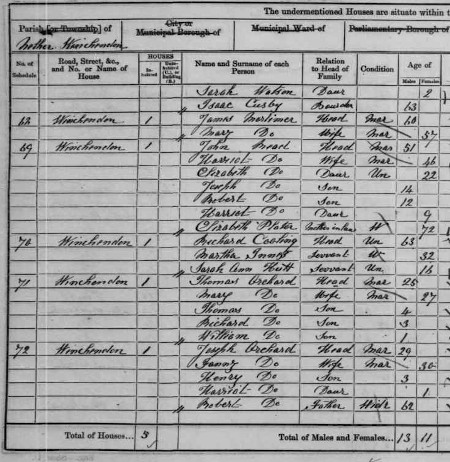 The undermentioned Houses are situate within t
Parish [or Township] of
City or
Municipal Borough of
Municipal Ward of
Parliamentary Borough of
Nether Winchendon
No. of Schedule
Road, Street, &c., and No. or Name of House
HOUSES
Inhabited
Uninhabited (U.), or Building (B.)
Name and Surname of each Person
Relation to Head of Family
Condition
Age of
Males
Females
Sarah Watson Daur 2
Isaac Cusby Boarder 63
68 Winchendon 1 James Mortimer Head Mar 60
Mary Do Wife Mar 57
69 Winchendon 1 John Mead Head Mar 51
Harriot Do Wife Mar 46
Elizabeth Do Daur Un 22
Joseph Do Son 14
Robert Do Son 12
Harriot Do Daur 9
Elizabeth Plater Mother in law W 72
70 Winchendon 1 Richard Cooling Head Un 63
Martha Servant W 32
Sarah Ann Servant Un 16
71 Winchendon 1 Thomas Orchard Head Mar 25
Mary Do Wife Mar 27
Thomas Do Son 4
Richard Do Son 3
William Do Son 1
72 Winchendon 1 Joseph Orchard Head Mar 29
Fanny Do Wife Mar 30
Henry Do Son 3
Harriot Do Daur 1
Robert Do Father Widr 62
Total of Houses... 5
Total of Males and Females... 13 11